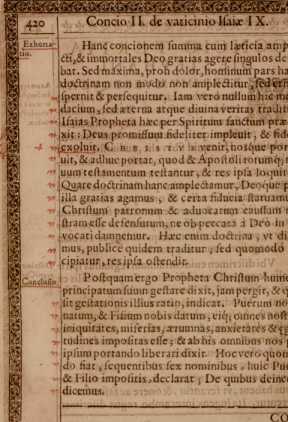 420 Concio II. de vaticinio Isaiæ IX.
Exhorta-
tio.
Hanc concionem summa cum læticia amp
cti, & immortales Deo gratias agere singulos de
bat. Sed maxima, proh dolor, hominum pars ha
doctrinam non modo non amplectitur, sed etia
spernit & persequitur. Iam vero nullum hic me
dacium, sed æterna atque divina veritas tradit
Isaias Propheta hæc per Spiritum sanctum præ
xit: Deus promissum fideliter impleuit, & fid
exoluit. CHRISTVS venit, nosque por
uit, & adhuc portat, quod & Apostoli totumq;
uum testamentum testantur, & res ipsa loquit
Quare doctrinam hanc amplectamur, Deoque p
illa gratias agamus, & certa fiducia statuam
Christum patronum & aduocatum caussam n
stram esse defensurum, ne ob peccata à Deo in
vocati damnemur. Hæc enim doctrina, vt di
mus, publice quidem traditur, sed quomodo
cipiatur, res ipsa ostendit.
Conclusio.
Postquam ergo Propheta Christum hunc
principatum suum gestare dixit, iam pergit, & q
sit gestationis illius ratio, indicat. Puerum no
natum, & Filium nobis datum, eiq; omnes nost
iniquitates, miserias, ærumnas, anxietates &
tudines impositas esse; & ab his omnibus nos p
ipsum portando liberari dixit. Hoc vero quom
do fiat, sequentibus sex nominibus, huic Pue
& Filio impositis, declarat; De quibus deinc
dicemus.
CO